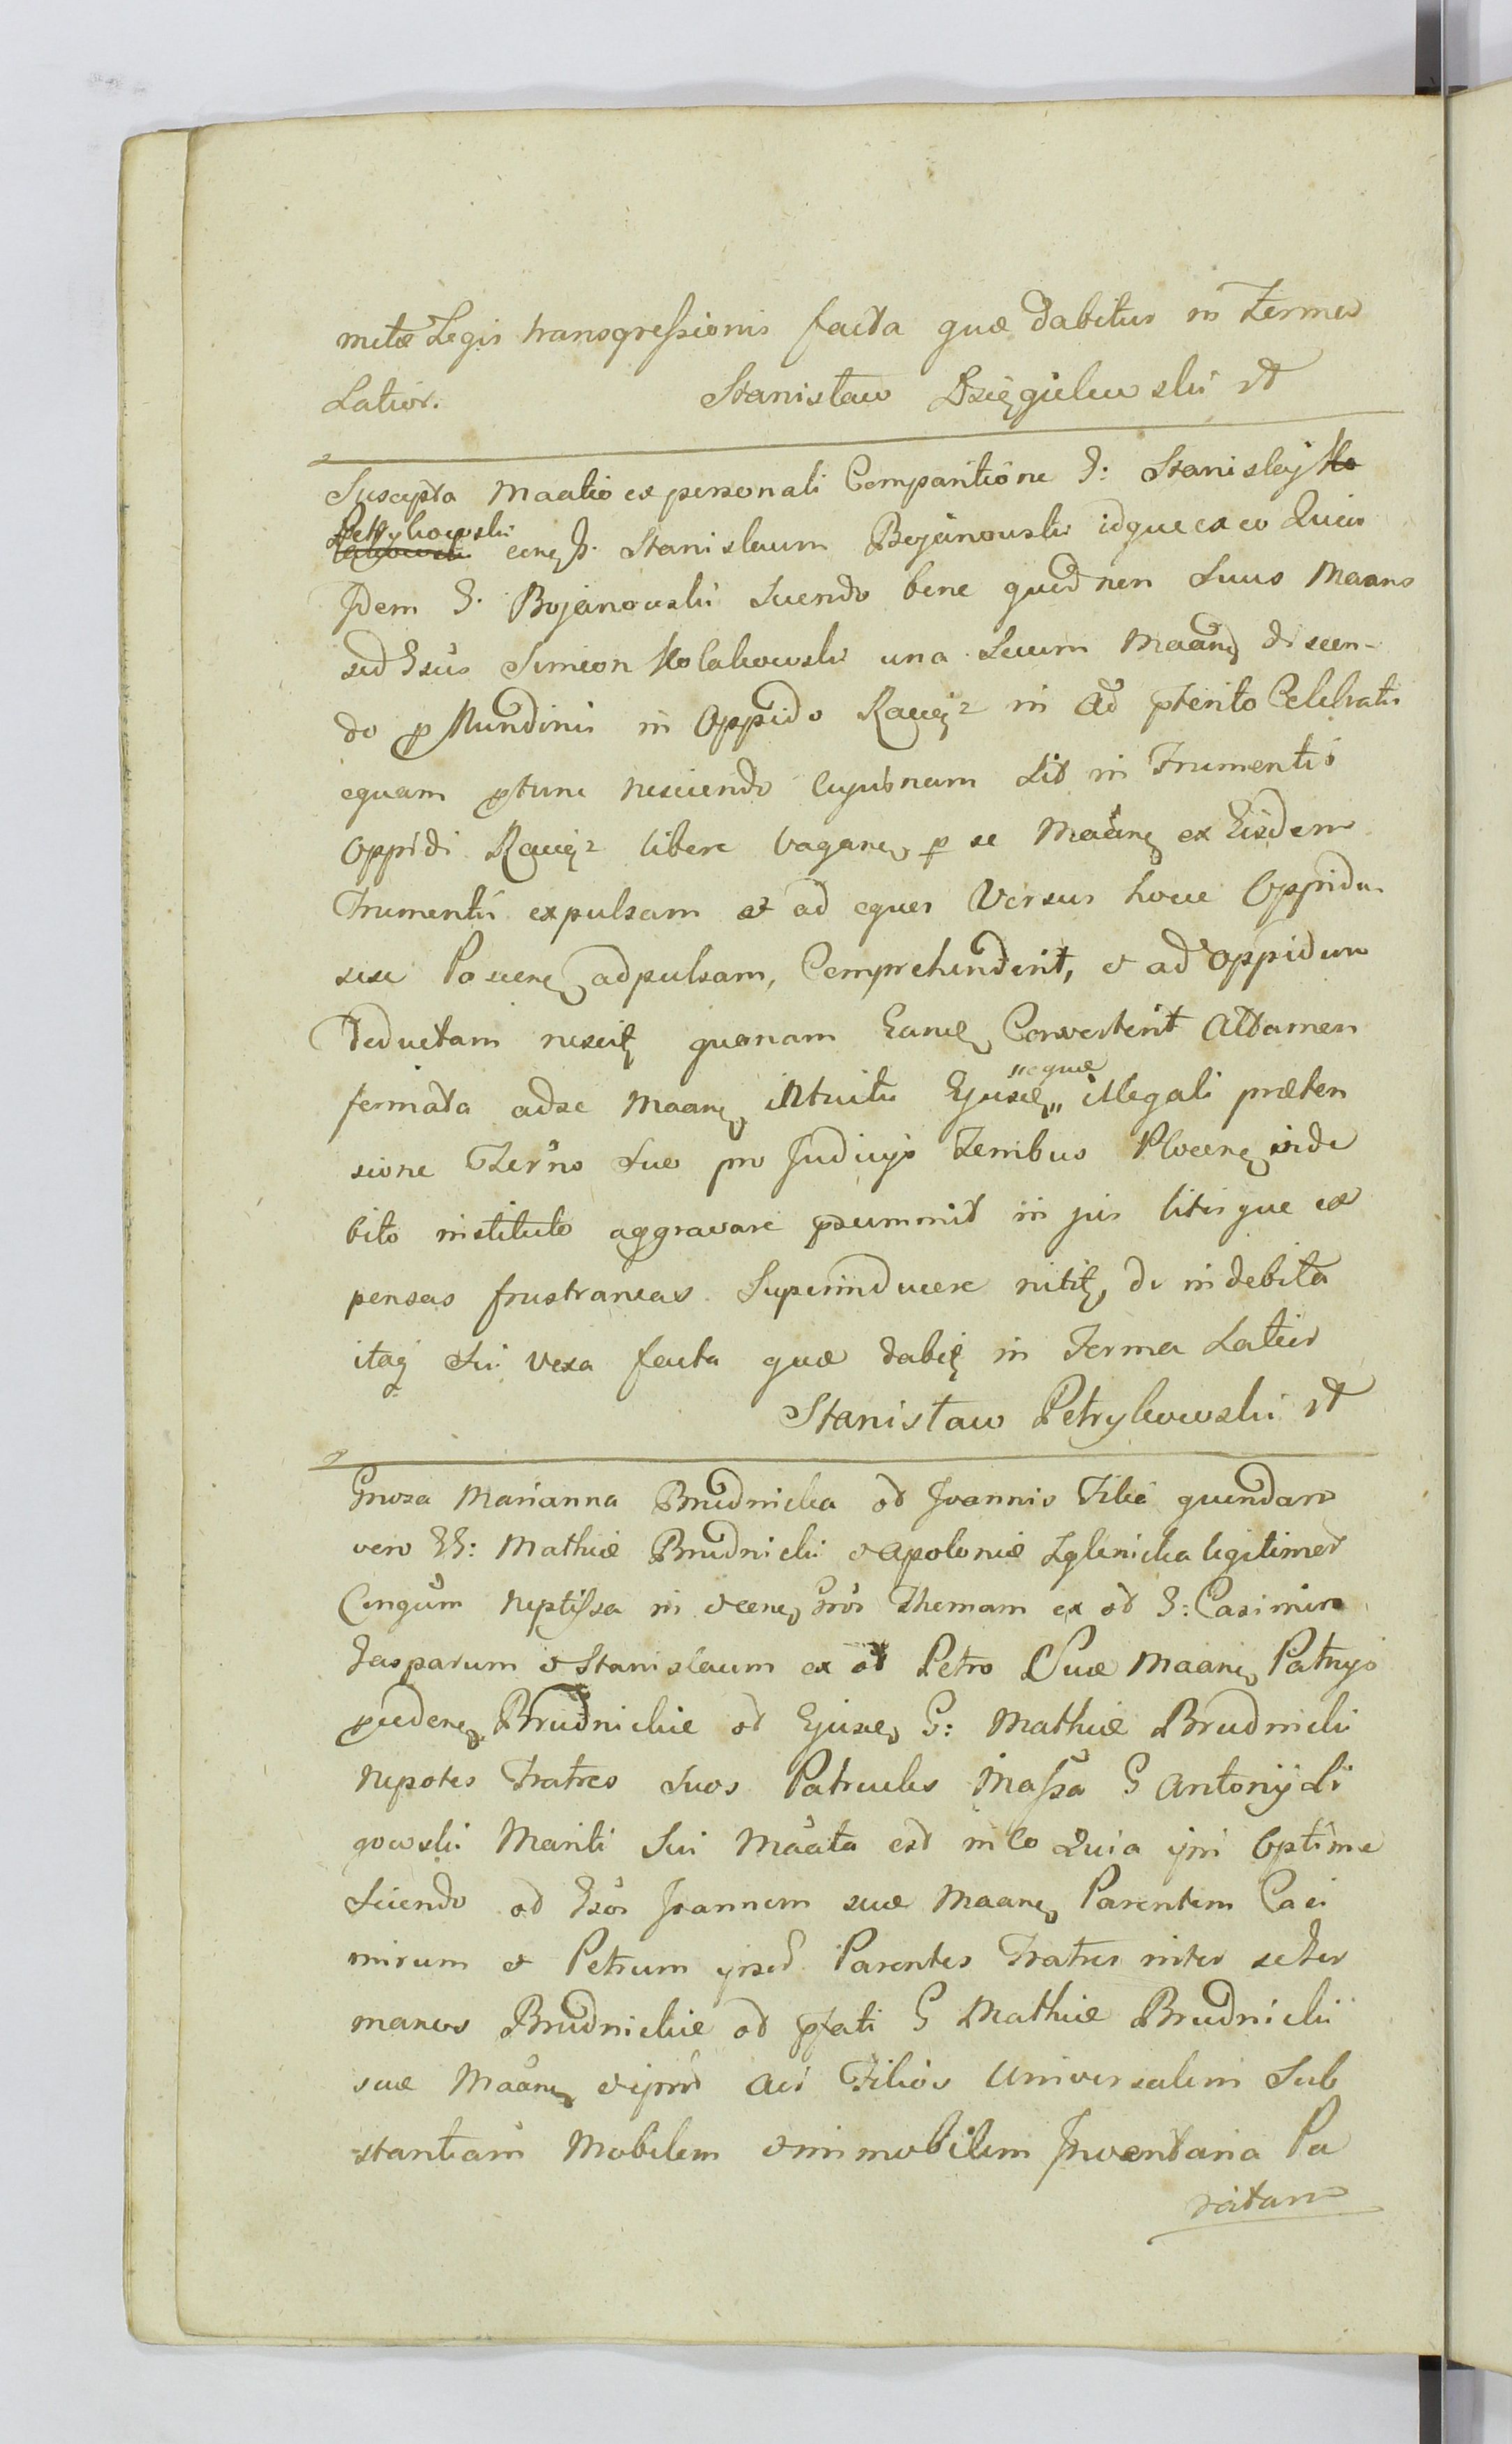 mitæ Legis transgressionis facta quæ dabitur in Forma
Latiori. Stanisław Dzięgielewski mp
Suscepta Maãtio ex personali Comparitione G: Stanislaj Ko
Petrykowski
łakowski cong G. Stanislaum Bojanowski idque ex eo Quia
Idem G. Bojanowski Sciendo bene quod non Suus Maãns
sed Gsus Simeon Kolakowski una Secum Maãnt discen-
do p Nundinis in Oppido Raciąz in Aõ pterito Celebratis
equam ptunc nesciendo Cujusnam Sit in Frumentis
Oppidi Raciąz libere Vagan p se Maãnt ex Eisdem
Frumentis expulsam et ad eques Versus hocce Oppidu
sese Pascen adpulsam, Comprehenderit, & ad Oppidum
deductam nescit quonam Eand Converterit Attamen
seque
formata adse Maãn intuitu Ejusd illegali præten
sione Terño Suo pro Judicijs Terribus Plocen inde
bito instituto aggravare psummit in jus litisque ex
pensas frustraneas Superinducere nitit, de indebita
itaq Sui Vexa facta quæ dabit in Forma Latiori
Stanisław Petrykowski mp
Gnrosa Marianna Brudnicka od Joannis Filia quondam
vero GG: Mathiæ Brudnicki & Apoloniæ Zglinicka legitimor
Congum Neptissa in & con Gros Thomam ex od G: Casimiro
Gasparum & Stanislaum ex od Petro Suæ Maãn Patrujs
preden Brudnickie od Ejusd G: Mathiæ Brudnicki
Nepotes Fratres Suos Patrueles Massa G Antonij Li
gowski Mariti Sui Maãta est in eo Quia ipsi Optime
Sciendo od Gsos Joannem suæ Maãn Parentem Casi
mirum & Petrum ipsor Parentes Fratres inter se Ger
manos Brudnickie od pfati G Mathiæ Brudnickii
suæ Maãn & ipsor Avi Filios Universalem Sub
stantiam Mobilem & immobilem Inventaria Pa
ritam